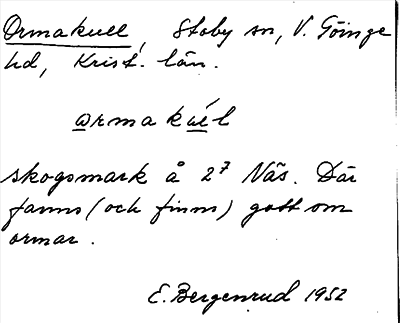 Ormakull, Stoby sn, V. Göinge
hd, Krist. län.
ormakué́l
skogsmark å 2⁷ Näs. Där
fanns (och finns) gott om
ormar.
E. Bergenrud 1952